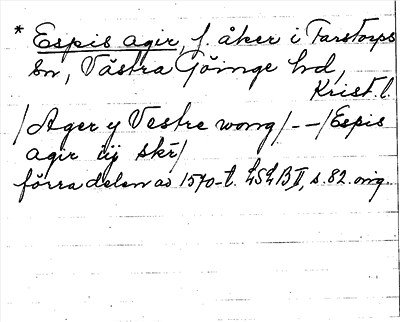 * Espis agir, f. åker i Farstorps
sn, Västra Göinge hd,
Krist. l.
/Ager y Vestre wong/ - - /Espis
agir iij skr/
förra delen av 1570-t. LSLB II, s. 82. orig.